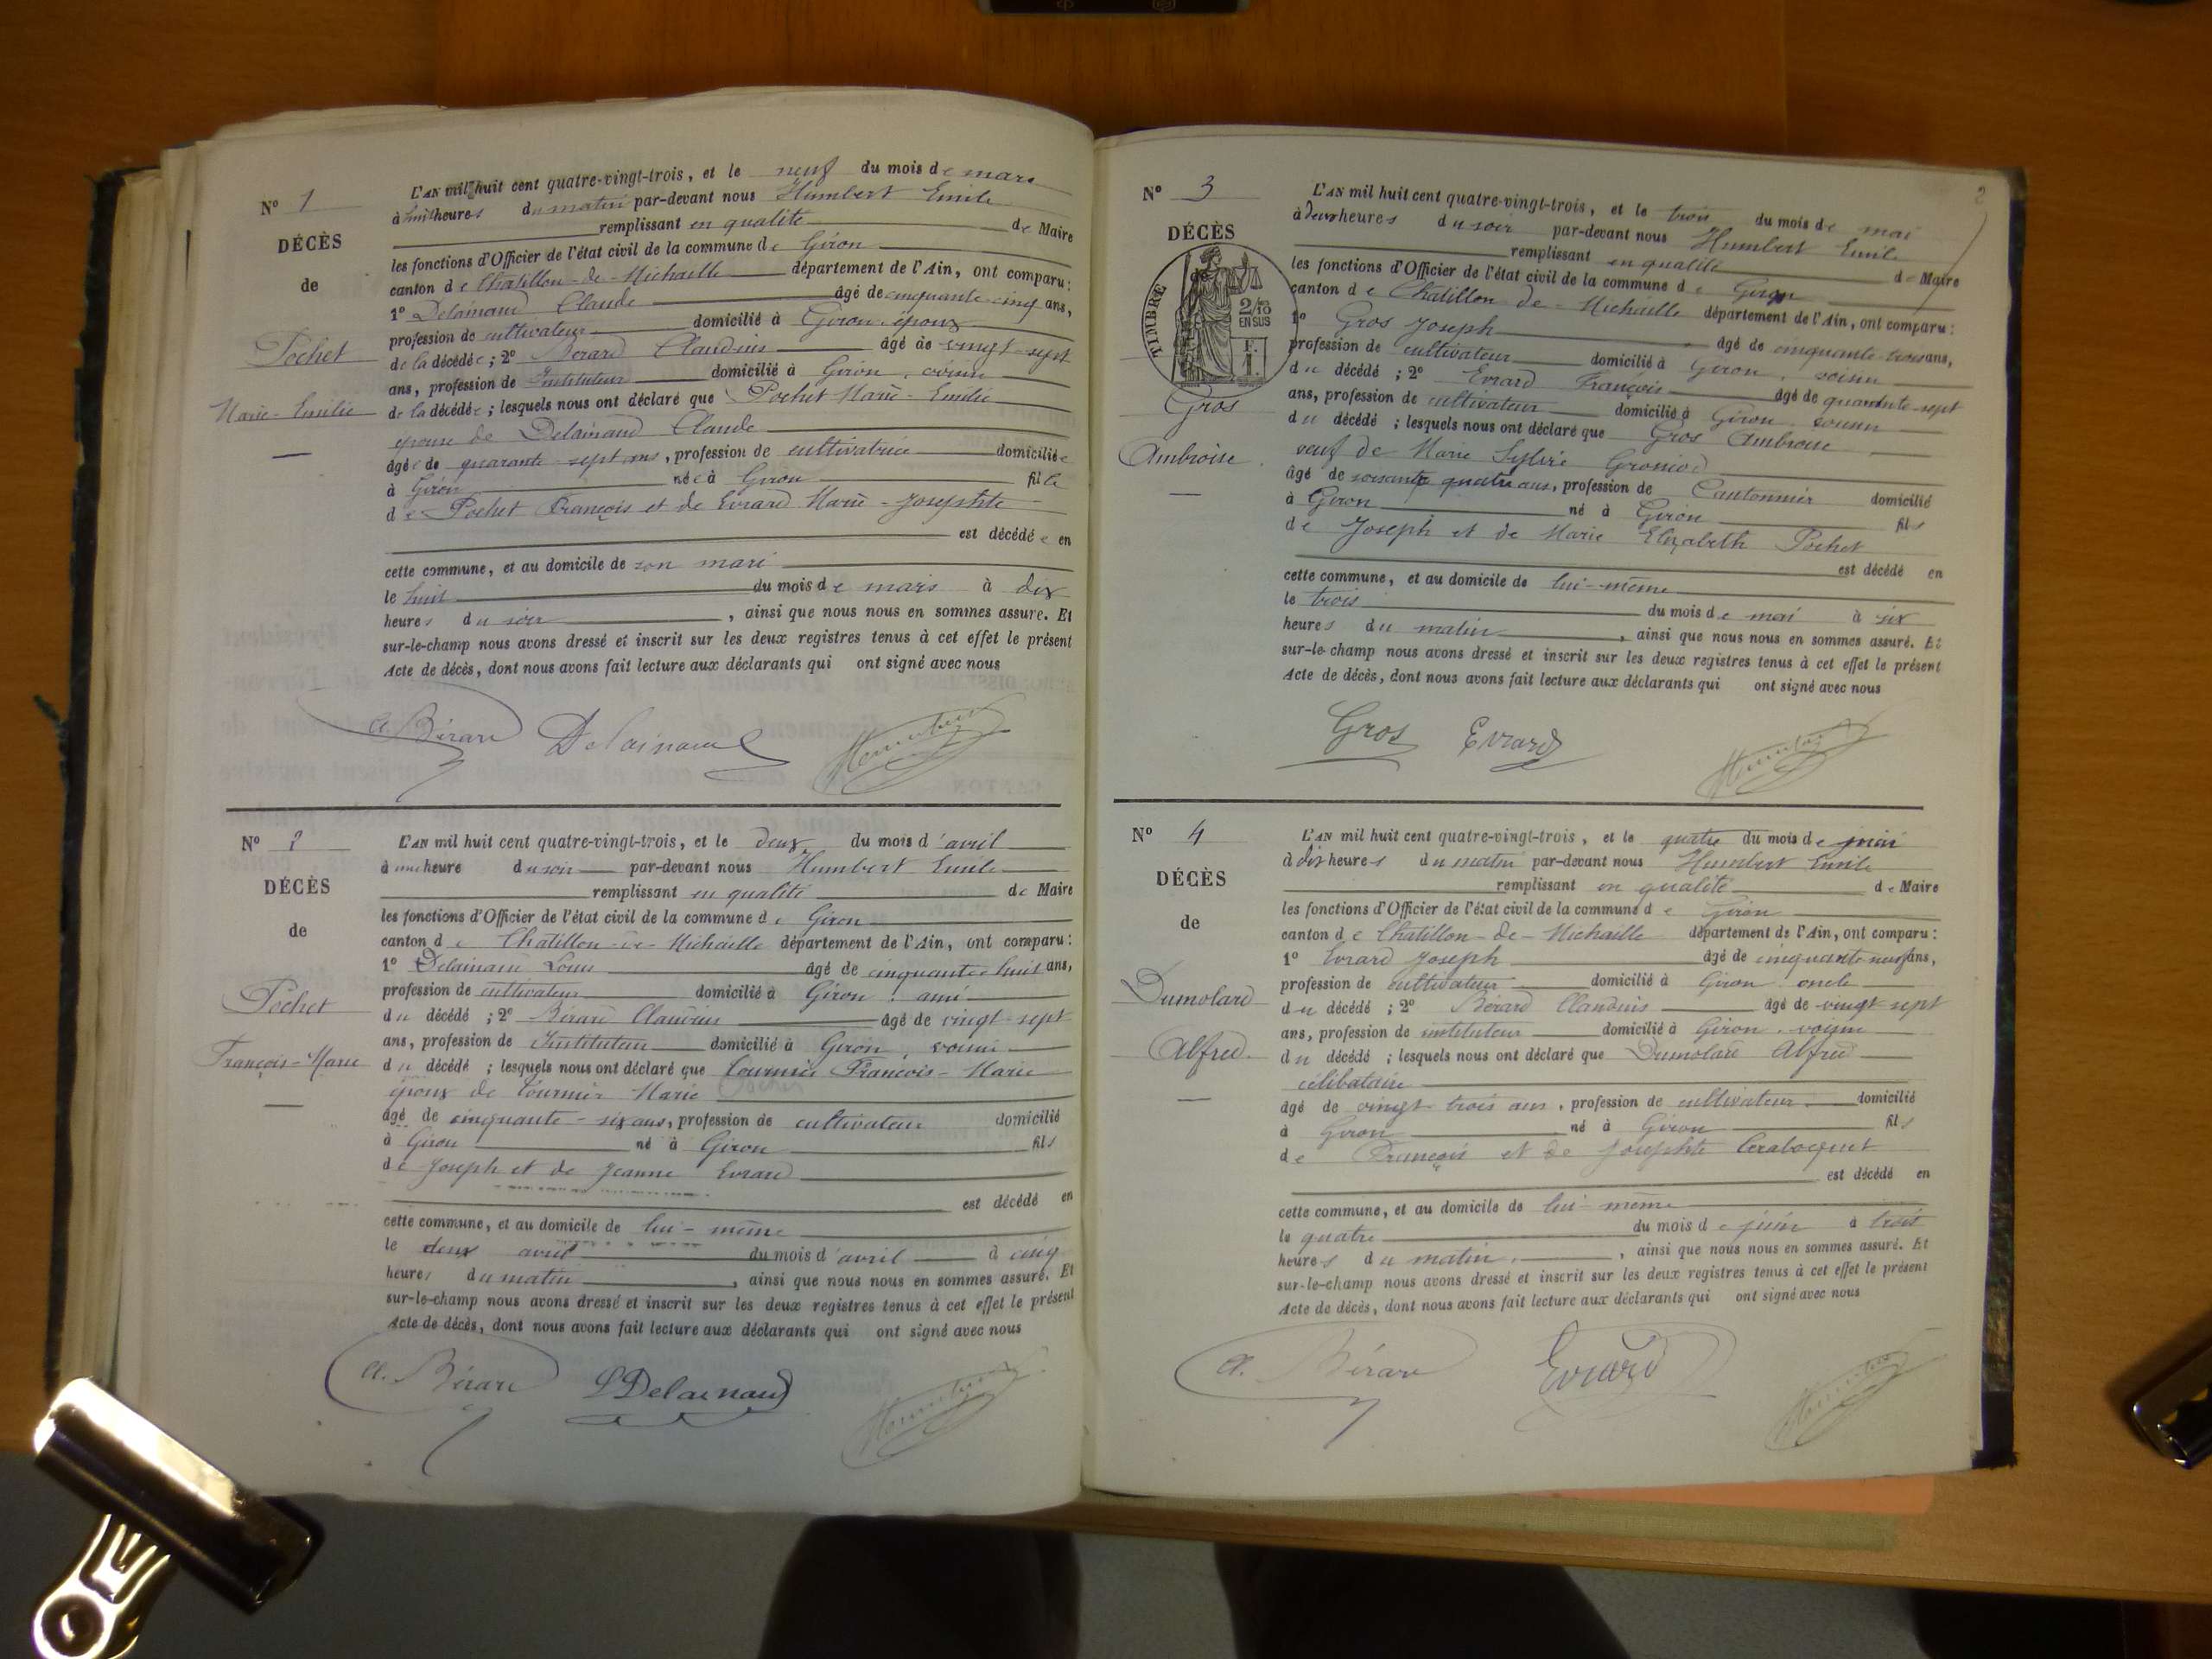 N° 1
DÉCÈS
de
Pochet
Marie-Emilie
L'AN mil huit cent quatre-vingt-trois, et le neuf du mois de mars
à huit heures du matin par-devant nous Humbert Emile
remplissant en qualité de Maire
les fonctions d'Officier de l'état civil de la commune de Giron
canton de Chatillon-de-Michaille département de l'Ain, ont comparu :
1° Delainaud Claude âgé de cinquante-cinq ans,
profession de cultivateur domicilié à Giron, époux
de la décédée ; 2° Bérard Claudius âgé de vingt-sept
ans, profession de Instituteur domicilié à Giron, voisin
de la décédée ; lesquels nous ont déclaré que Pochet Marie-Emilie
épouse de Delainaud Claude
âgée de quarante-sept ans, profession de cultivatrice domiciliée
à Giron née à Giron fille
de Pochet François et de Evrard Marie-Josephte
est décédée en
cette commune, et au domicile de son mari
le huit du mois de mars à dix
heures du soir, ainsi que nous nous en sommes assuré. Et
sur-le-champ nous avons dressé et inscrit sur les deux registres tenus à cet effet le présent
Acte de décès, dont nous avons fait lecture aux déclarants qui ont signé avec nous
Cl. Bérard Delainaud Humbert
N° 2
DÉCÈS
de
Pochet
François-Marie
L'AN mil huit cent quatre-vingt-trois, et le deux du mois d'avril
à une heure du soir par-devant nous Humbert Emile
remplissant en qualité de Maire
les fonctions d'Officier de l'état civil de la commune de Giron
canton de Chatillon-de-Michaille département de l'Ain, ont comparu :
1° Delainaud Louis âgé de cinquante-huit ans,
profession de cultivateur domicilié à Giron, ami
du décédé ; 2° Bérard Claudius âgé de vingt-sept
ans, profession de Instituteur domicilié à Giron, voisin
du décédé ; lesquels nous ont déclaré que Tournier François-Marie
Pochet
époux de Tournier Marie
âgé de cinquante-six ans, profession de cultivateur domicilié
à Giron né à Giron fils
de Joseph et de Jeanne Evrard
est décédé en
cette commune, et au domicile de lui-même
le deux avril du mois d'avril à cinq
heures du matin, ainsi que nous nous en sommes assuré. Et
sur-le-champ nous avons dressé et inscrit sur les deux registres tenus à cet effet le présent
Acte de décès, dont nous avons fait lecture aux déclarants qui ont signé avec nous
Cl. Bérard L Delainaud Humbert
2
N° 3
DÉCÈS
de
TIMBRE
2/10
EN SUS
F.
1.
Gros
Ambroise
L'AN mil huit cent quatre-vingt-trois, et le trois du mois de mai
à deux heures du soir par-devant nous Humbert Emile
remplissant en qualité de Maire
les fonctions d'Officier de l'état civil de la commune de Giron
canton de Chatillon-de-Michaille département de l'Ain, ont comparu :
1° Gros Joseph âgé de cinquante-trois ans,
profession de cultivateur domicilié à Giron, voisin
du décédé ; 2° Evrard François âgé de quarante-sept
ans, profession de cultivateur domicilié à Giron, cousin
du décédé ; lesquels nous ont déclaré que Gros Ambroise
veuf de Marie Sylvie
âgé de soixante quatre ans, profession de Cantonnier domicilié
à Giron né à Giron fils
de Joseph et de Marie Elizabeth Pochet
est décédé en
cette commune, et au domicile de lui-même
le trois du mois de mai à six
heures du matin, ainsi que nous nous en sommes assuré. Et
sur-le-champ nous avons dressé et inscrit sur les deux registres tenus à cet effet le présent
Acte de décès, dont nous avons fait lecture aux déclarants qui ont signé avec nous
Gros Evrard Humbert
N° 4
DÉCÈS
de
Dumolard
Alfred
L'AN mil huit cent quatre-vingt-trois, et le quatre du mois de
à dix heures du matin par-devant nous Humbert Emile
remplissant en qualité de Maire
les fonctions d'Officier de l'état civil de la commune de Giron
canton de Chatillon-de-Michaille département de l'Ain, ont comparu :
1° Evrard Joseph âgé de cinquante-neuf ans,
profession de cultivateur domicilié à Giron, oncle
du décédé ; 2° Bérard Claudius âgé de vingt-sept
ans, profession de instituteur domicilié à Giron, voisin
du décédé ; lesquels nous ont déclaré que Dumolard Alfred
célibataire
âgé de vingt-trois ans, profession de cultivateur domicilié
à Giron né à Giron fils
de François et de Josephte
est décédé en
cette commune, et au domicile de lui-même
le quatre du mois de juin à trois
heures du matin, ainsi que nous nous en sommes assuré. Et
sur-le-champ nous avons dressé et inscrit sur les deux registres tenus à cet effet le présent
Acte de décès, dont nous avons fait lecture aux déclarants qui ont signé avec nous
Cl. Bérard Evrard Humbert